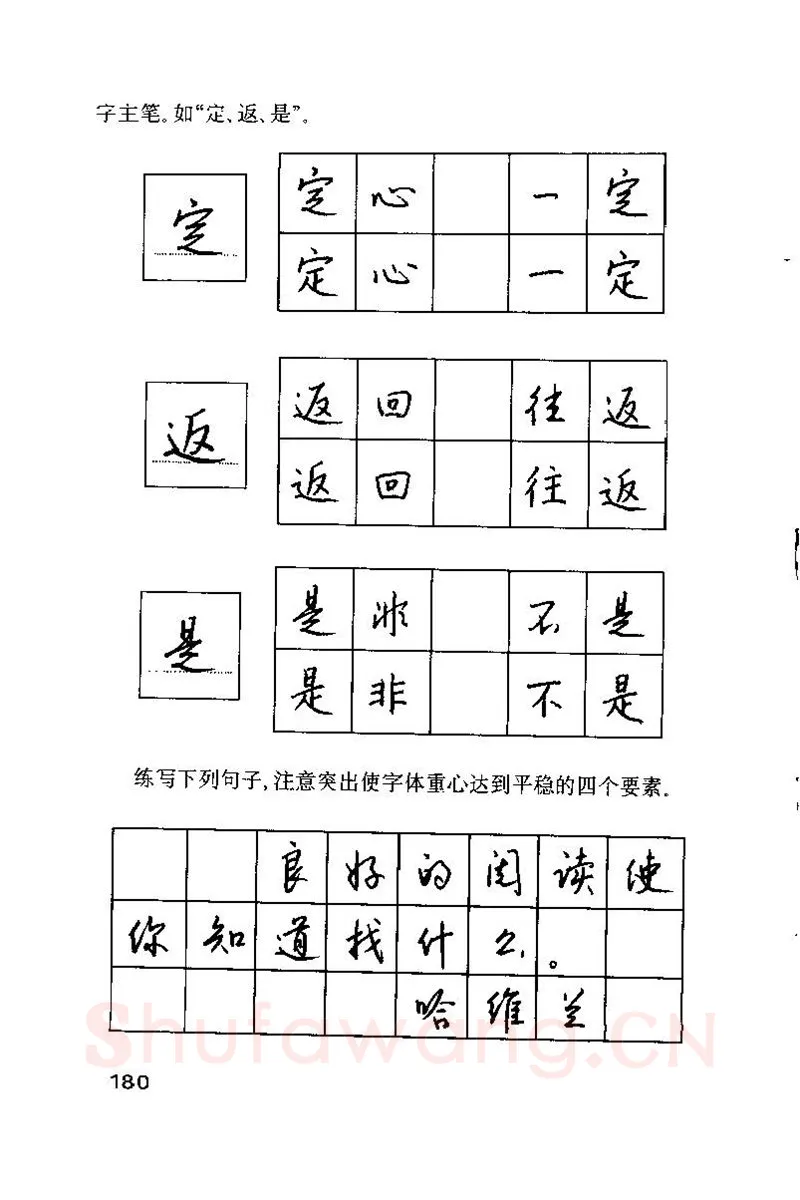 字主笔。如“定、返、是”。
定
定心 一定
定心 一定
返
返回 往返
返回 往返
是
是非 不是
是非 不是
练写下列句子,注意突出使字体重心达到平稳的四个要素。
良好的阅读使
你知道找什么。
哈维兰
Shufawang.CN
180